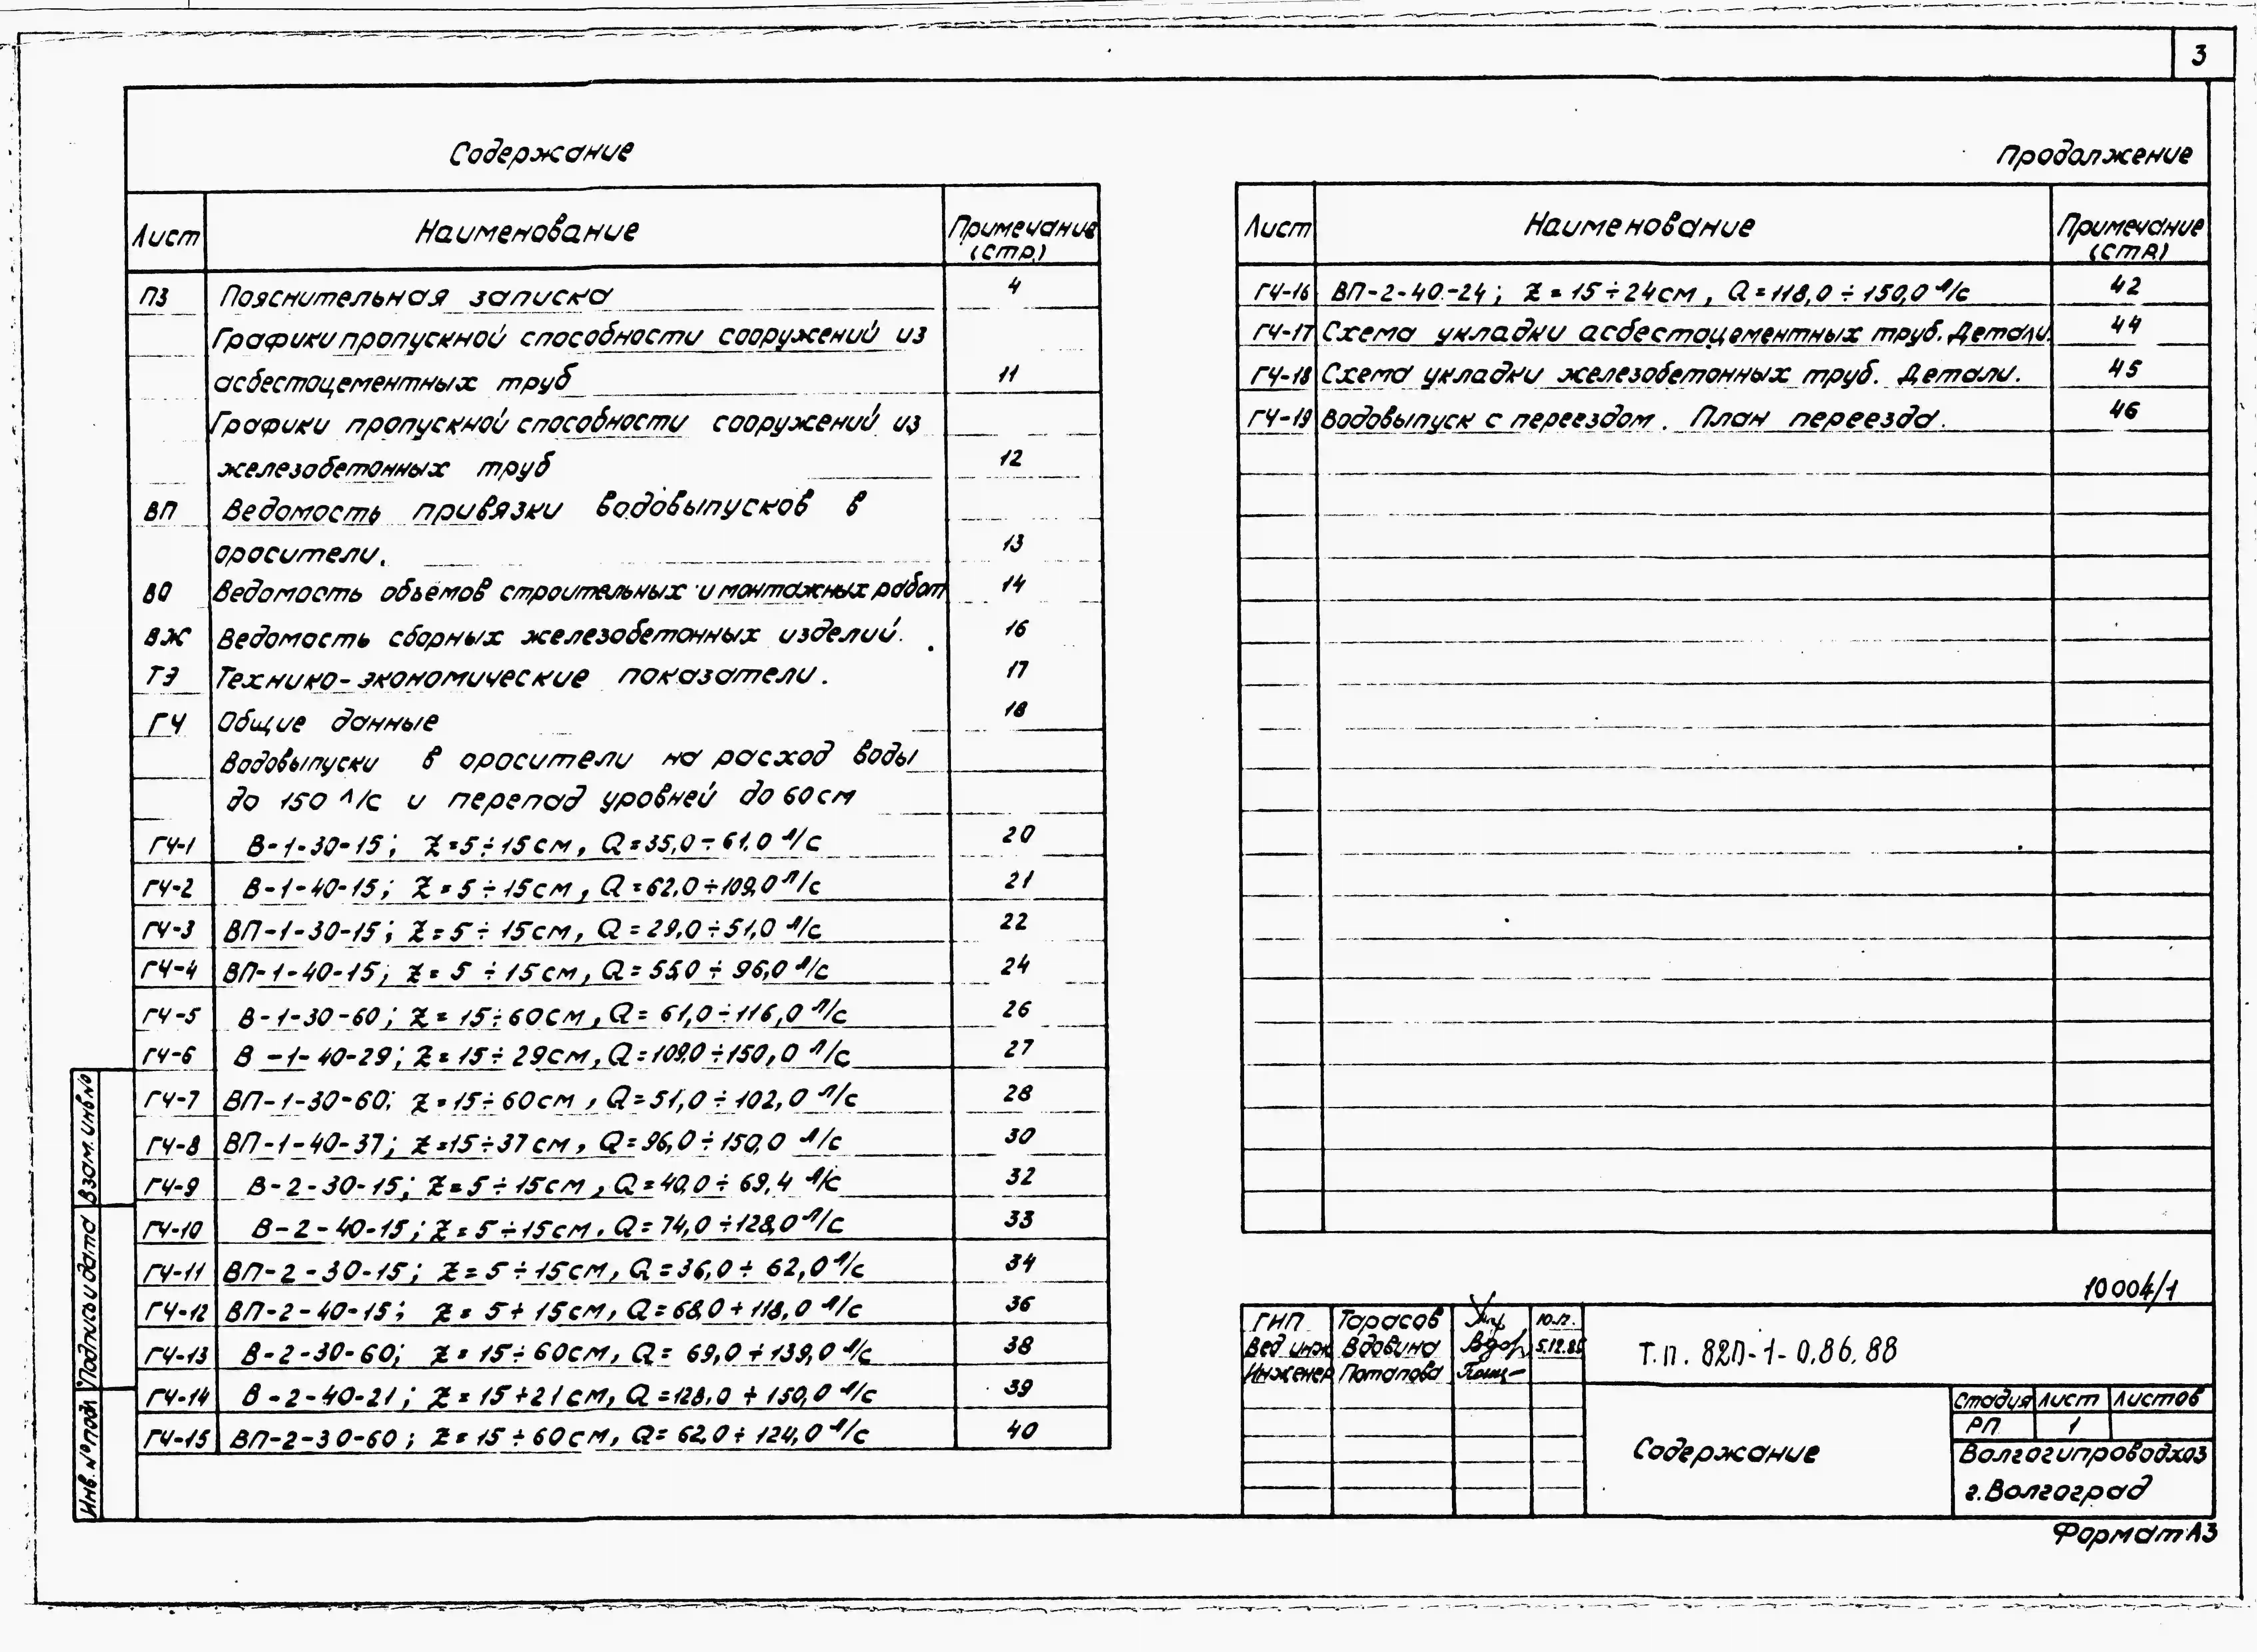 3
Содержание
Лист Наименование Примечание (стр.)
ПЗ Пояснительная записка 4
Графики пропускной способности сооружений из
асбестоцементных труб 11
Графики пропускной способности сооружений из
железобетонных труб 12
ВП Ведомость привязки водовыпусков в
оросители. 13
ВО Ведомость объёмов строительных и монтажных работ 14
ВЖ Ведомость сборных железобетонных изделий. 16
ТЭ Технико-экономические показатели. 17
ГЧ Общие данные 18
Водовыпуски в оросители на расход воды
до 150 л/с и перепад уровней до 60 см
ГЧ-1 В-1-30-15; Z=5÷15см, Q=35,0÷61,0 л/с 20
ГЧ-2 В-1-40-15; Z=5÷15см, Q=62,0÷109,0 л/с 21
ГЧ-3 ВП-1-30-15; Z=5÷15см, Q=29,0÷51,0 л/с 22
ГЧ-4 ВП-1-40-15; Z=5÷15см, Q=55,0÷96,0 л/с 24
ГЧ-5 В-1-30-60; Z=15÷60см, Q=61,0÷116,0 л/с 26
ГЧ-6 В-1-40-29; Z=15÷29см, Q=109,0÷150,0 л/с 27
ГЧ-7 ВП-1-30-60; Z=15÷60см, Q=51,0÷102,0 л/с 28
ГЧ-8 ВП-1-40-37; Z=15÷37см, Q=96,0÷150,0 л/с 30
ГЧ-9 В-2-30-15; Z=5÷15см, Q=40,0÷69,4 л/с 32
ГЧ-10 В-2-40-15; Z=5÷15см, Q=74,0÷128,0 л/с 33
ГЧ-11 ВП-2-30-15; Z=5÷15см, Q=36,0÷62,0 л/с 34
ГЧ-12 ВП-2-40-15; Z=5÷15см, Q=68,0÷118,0 л/с 36
ГЧ-13 В-2-30-60; Z=15÷60см, Q=69,0÷139,0 л/с 38
ГЧ-14 В-2-40-21; Z=15÷21см, Q=128,0÷150,0 л/с 39
ГЧ-15 ВП-2-30-60; Z=15÷60см, Q=62,0÷124,0 л/с 40
Продолжение
Лист Наименование Примечание (стр.)
ГЧ-16 ВП-2-40-24; Z=15÷24см, Q=118,0÷150,0 л/с 42
ГЧ-17 Схема укладки асбестоцементных труб. Детали. 44
ГЧ-18 Схема укладки железобетонных труб. Детали. 45
ГЧ-19 Водовыпуск с переездом. План переезда. 46
Взам. инв №
Подпись и дата
Инв. № подл
10004/1
ГИП Тарасов
Вед инж Вдовина Вдов 5.12.88
Инженер Потапова
Т.п. 820-1-0.86.88
Содержание
Стадия Лист Листов
РП 1
Волгогипроводхоз
г. Волгоград
Формат А3